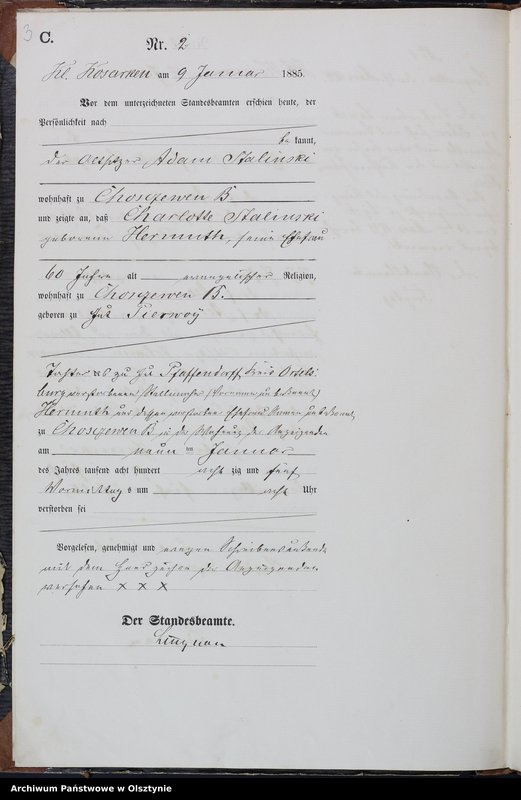 3
C.
Nr. 2
Kl. Kosarken am 9 Januar 1885.
Vor dem unterzeichneten Standesbeamten erschien heute, der
Persönlichkeit nach
be kannt,
der Adam Stalinski
wohnhaft zu Choszewen B
und zeigte an, daß Charlotte Stalinski
geborene Hermuth, seine Ehefrau
60 Jahre alt evangelischer Religion,
wohnhaft zu Choszewen B.
geboren zu Gut
Tochter des zu Gut Pfaffendorff Kreis Ortels
burg verstorbenen (Vorname unbekannt)
Hermuth und dessen verstorbener Ehefrau Namen unbekannt
zu Choszewen B in der Wohnung des Anzeigenden
am neun ten Januar
des Jahres tausend acht hundert acht zig und fünf
Vormittag s um acht Uhr
verstorben sei
Vorgelesen, genehmigt und wegen Schreibensunkunde
mit dem Handzeichen des Anzeigenden
versehen X X X
Der Standesbeamte.
Archiwum Państwowe w Olsztynie